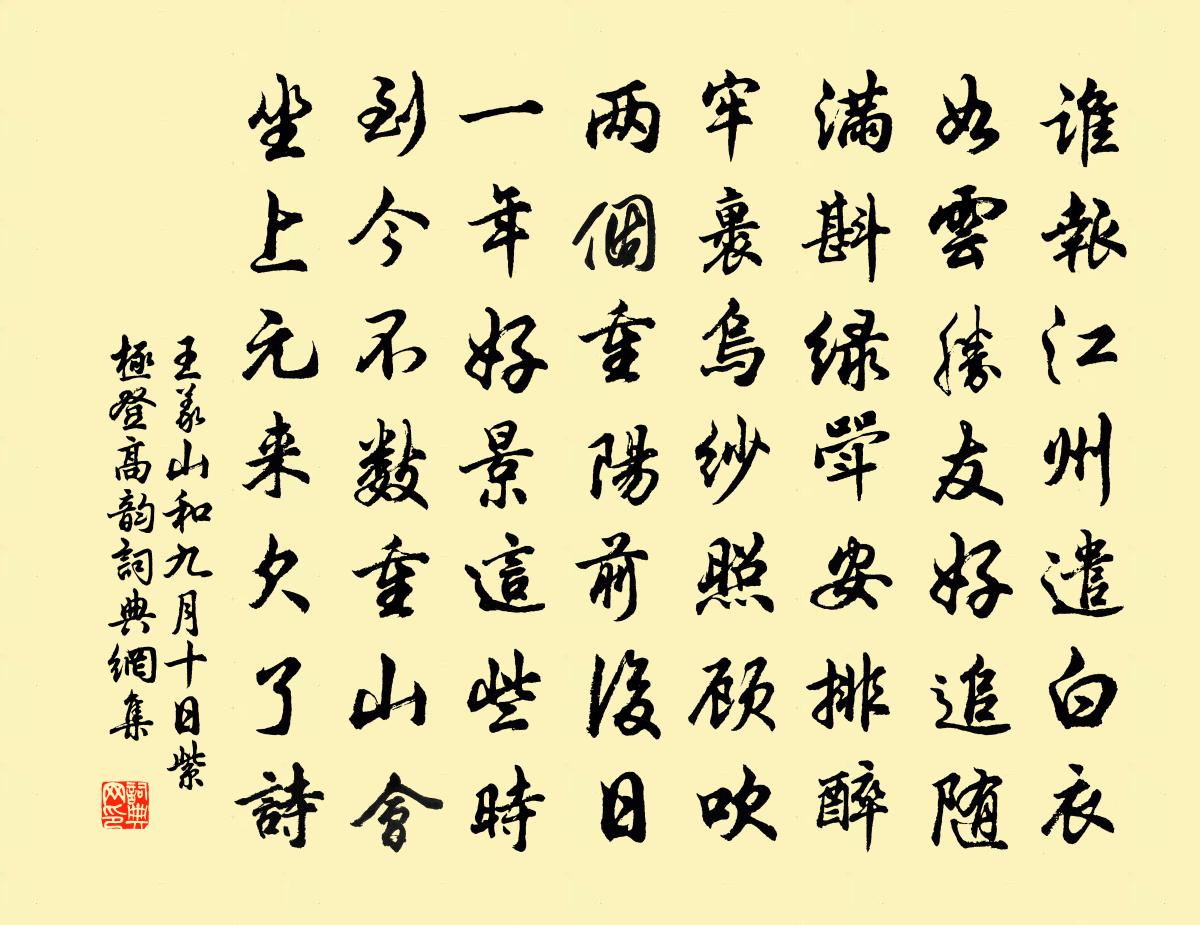 誰報江州遣白衣
如雲勝友好追随
滿斟緑斝安排醉
牢裹烏紗照顧吹
兩個重陽前後日
一年好景這些時
到今不數重山會
坐上元来欠了詩
王義山和九月十日紫
極登高韵詞典網集
詞典网印